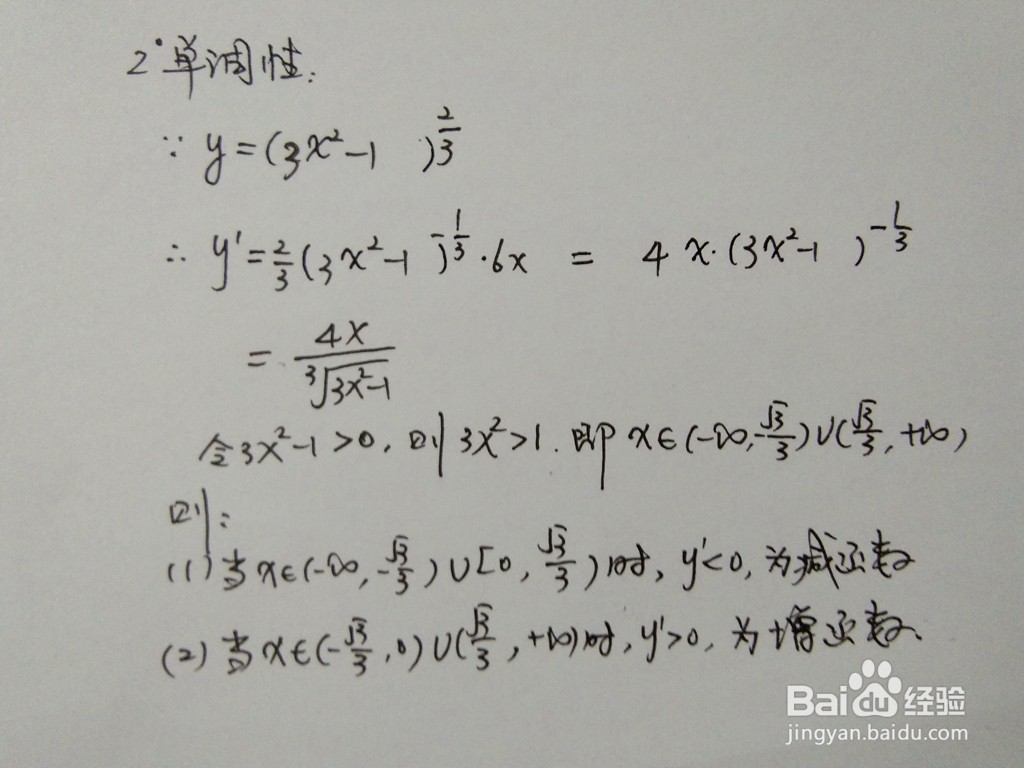 2°单调性:
∵ y=(3x²-1 )^(2/3)
∴ y'=2/3(3x²-1 )^(-1/3)·6x = 4x·(3x²-1 )^(-1/3)
= 4x/∛(3x²-1)
令3x²-1>0, 则3x²>1. 即x∈(-∞,-√3/3)∪(√3/3,+∞)
则:
(1)当x∈(-∞,-√3/3)∪[0,√3/3)时, y'<0, 为减函数
(2)当x∈(-√3/3,0)∪(√3/3,+∞)时, y'>0, 为增函数.
Baidu经验
jingyan.baidu.com